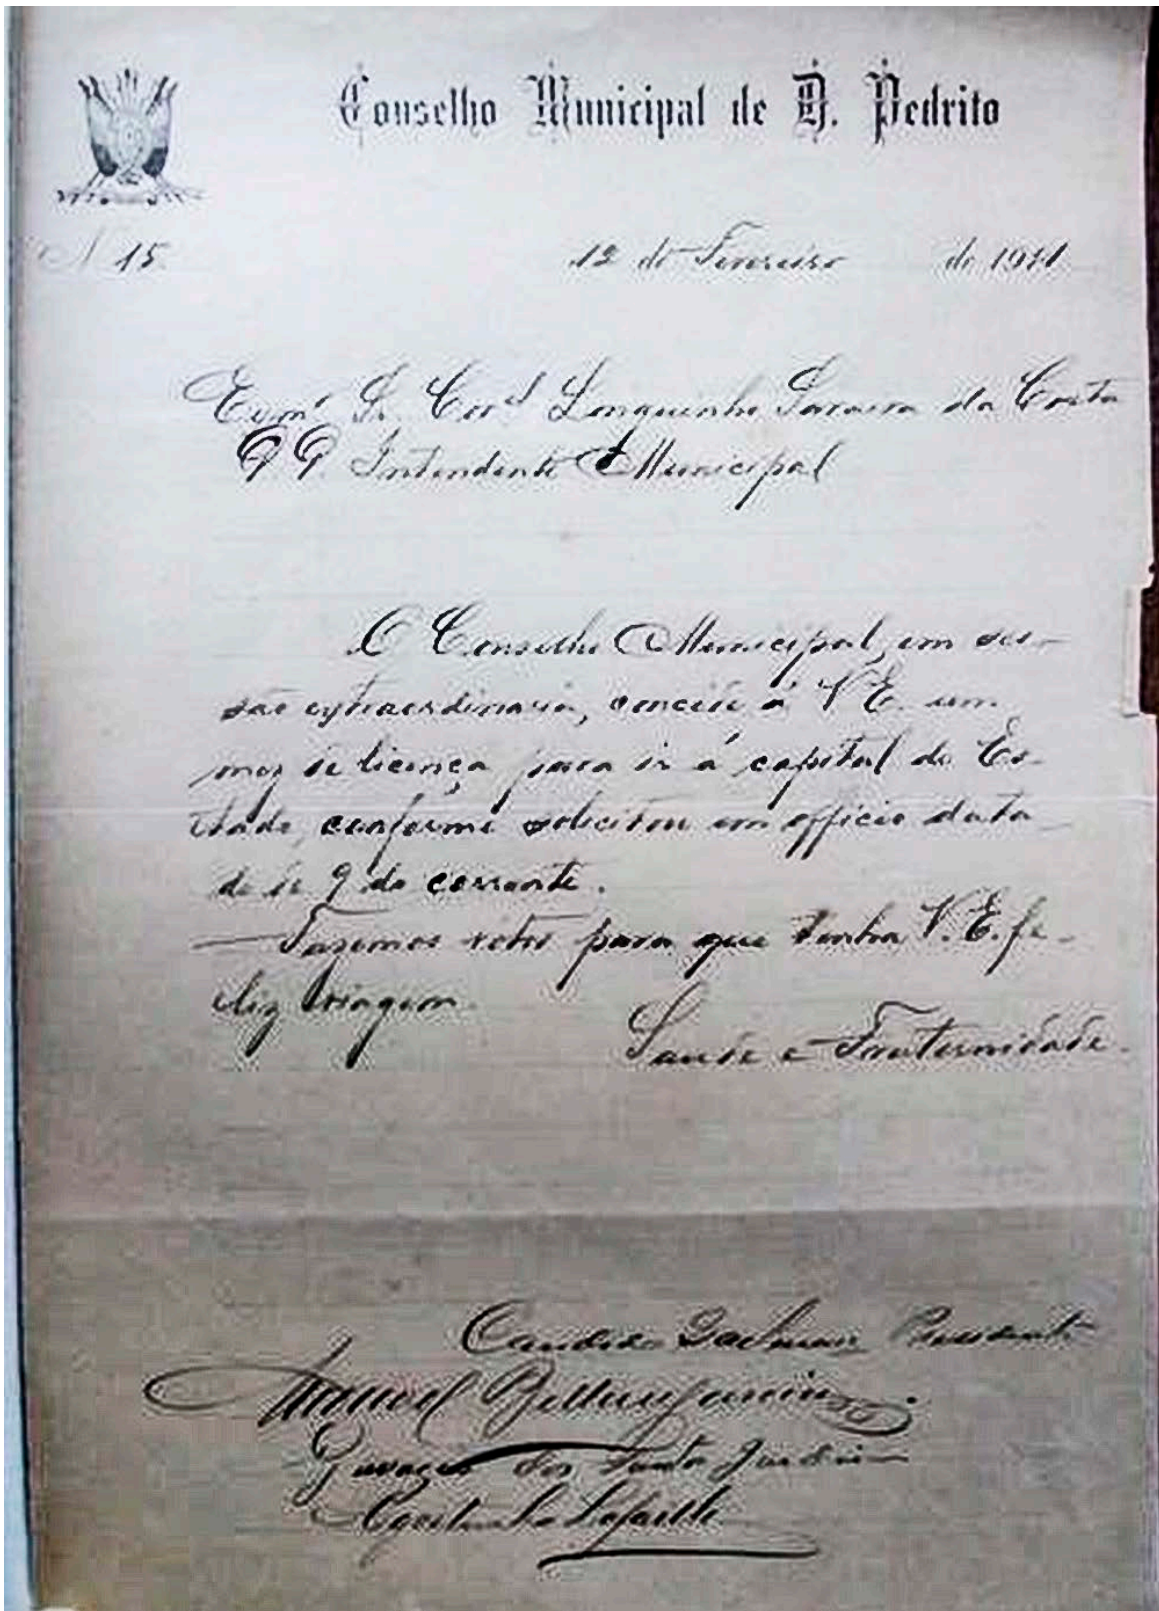 Conselho Municipal de D. Pedrito
N 15
12 de Fevereiro de 1911
Exmº Sr. Corel Longuinho Saraiva da Costa
Intendente Municipal
O Conselho Municipal, em ses-
são extraordinaria, concede á V. E. um
mez de licença para ir á capital do Es-
tado, conforme solicitou em officio data-
do de 9 do corrente.
Fazemos votos para que tenha V. E. fe-
liz viagem.
Saude e Fraternidade.
Candido Presidente
Manoel
dos Santos